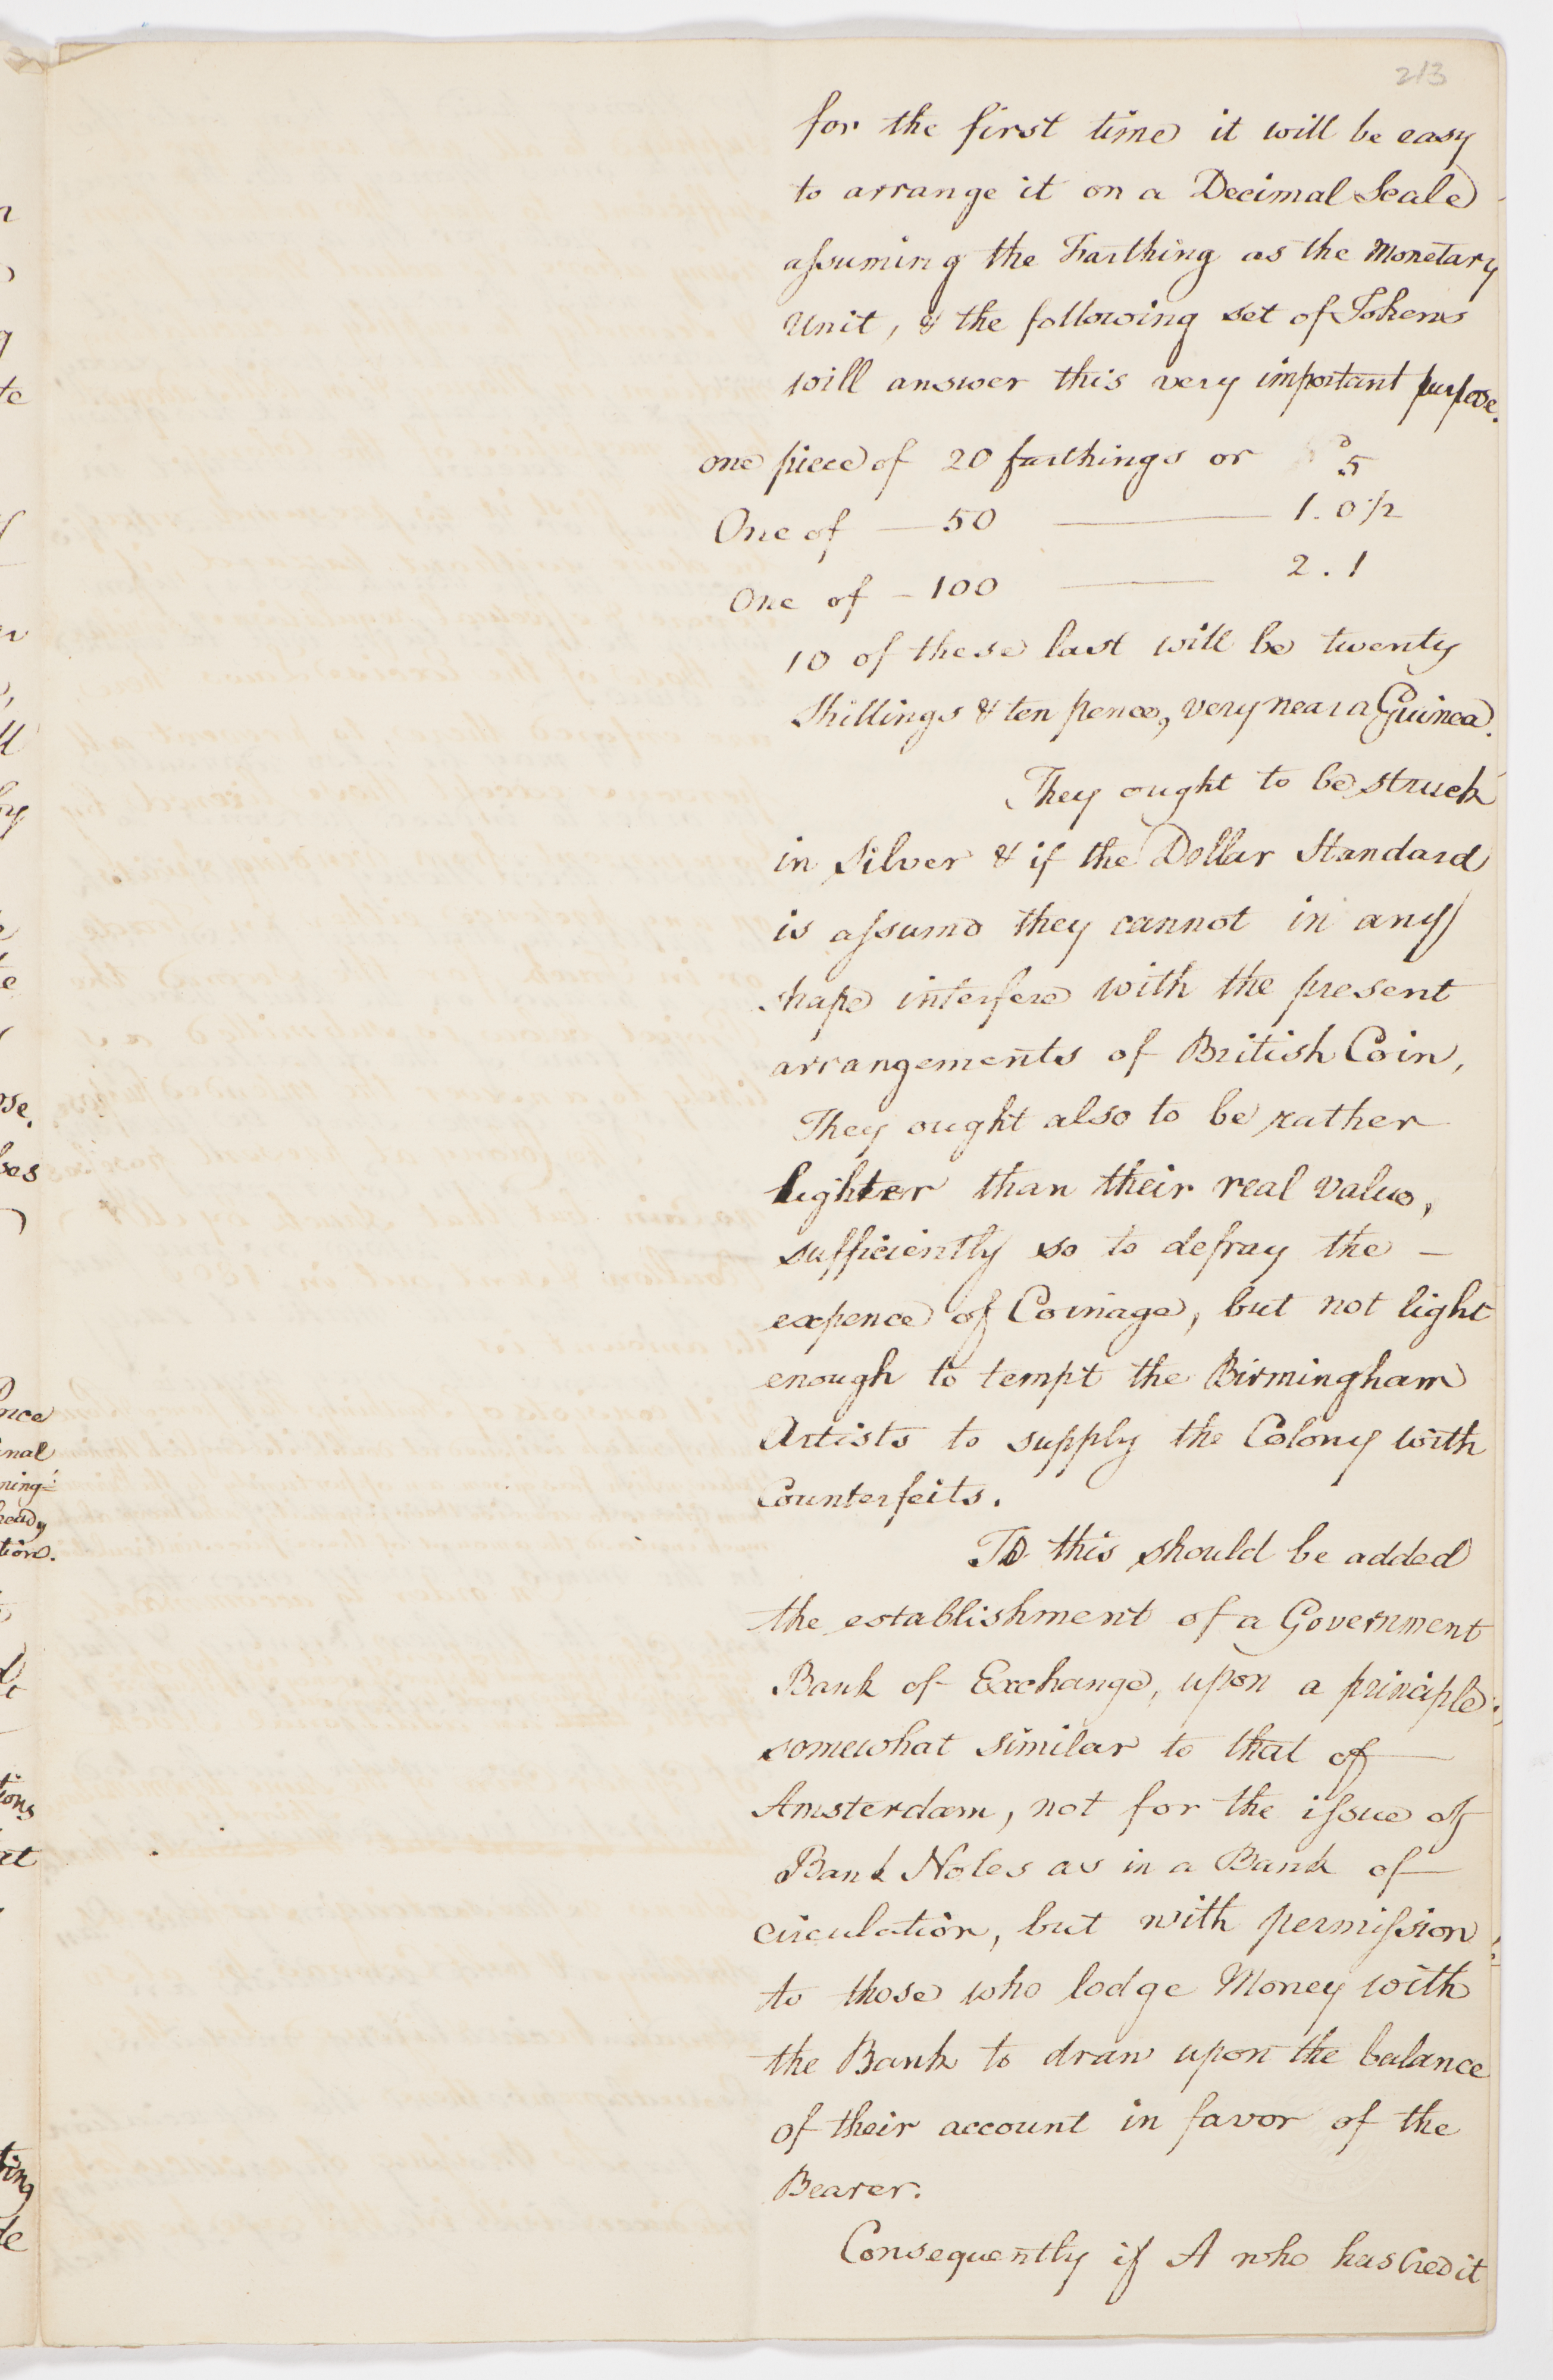 213
for the first time it will be easy
to arrange it on a Decimal Scale
assuming the Farthing as the Monetary
Unit, & the following set of Tokens
will answer this very important purpose.
one piece of 20 farthings or 5
One of — 50 — 1. 0½
One of — 100 — 2. 1
10 of these last will be twenty
Shillings & ten pence, very near a Guinea.
They ought to be struck
in Silver & if the Dollar Standard
is assumd they cannot in any
shape interfere with the present
arrangements of British Coin,
They ought also to be rather
lighter than their real value,
sufficiently so to defray the —
expence of Coinage, but not light
enough to tempt the Birmingham
Artists to supply the Colony with
Counterfeits.
To this should be added
the establishment of a Government
Bank of Exchange, upon a principle
somewhat similar to that of
Amsterdam, not for the issue of
Bank Notes as in a Bank of
circulation, but with permission
to those who lodge Money with
the Bank to draw upon the balance
of their account in favor of the
Bearer.
Consequently if A who has Credit